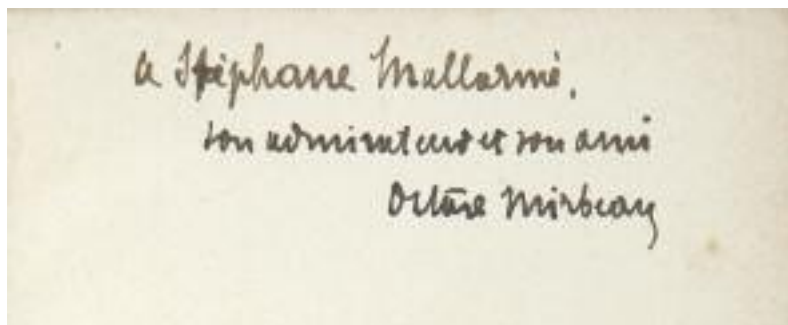 a Stéphane Mallarmé,
son admirateur et son ami
Octave Mirbeau